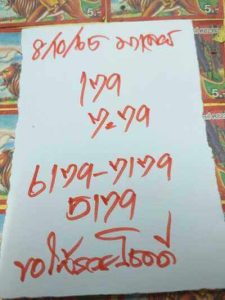 8/10/65 มาเลย์
179
7=79
6179-7179
5179
ขอให้รวยโชคดี
5.-
5.-